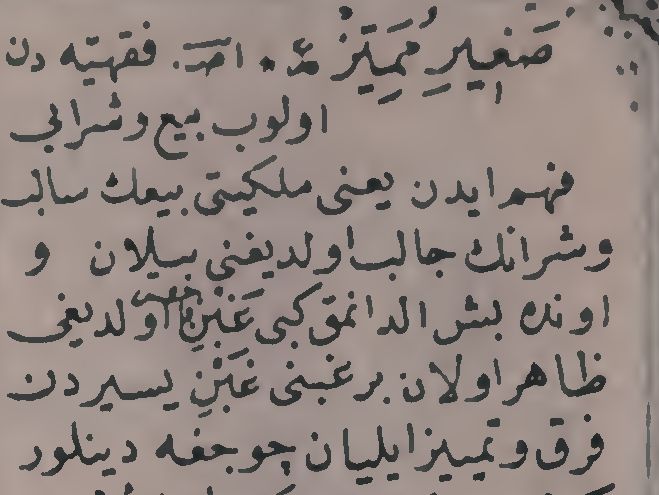 صَغِيرِ مُمَيِّزْ فقهيه دن
اولوب بيع وشرايى
فهم ايدن يعنى ملكيتى بيعك سالب
وشرانك جالب اولديغنى بيلان و
اونده بش الدانمق كبى غَبْنِ فاحش اولديغى
ظاهر اولان بر غبنى غَبْنِ يسيردن
فرق وتمييز ايليان چوجغه دينلور